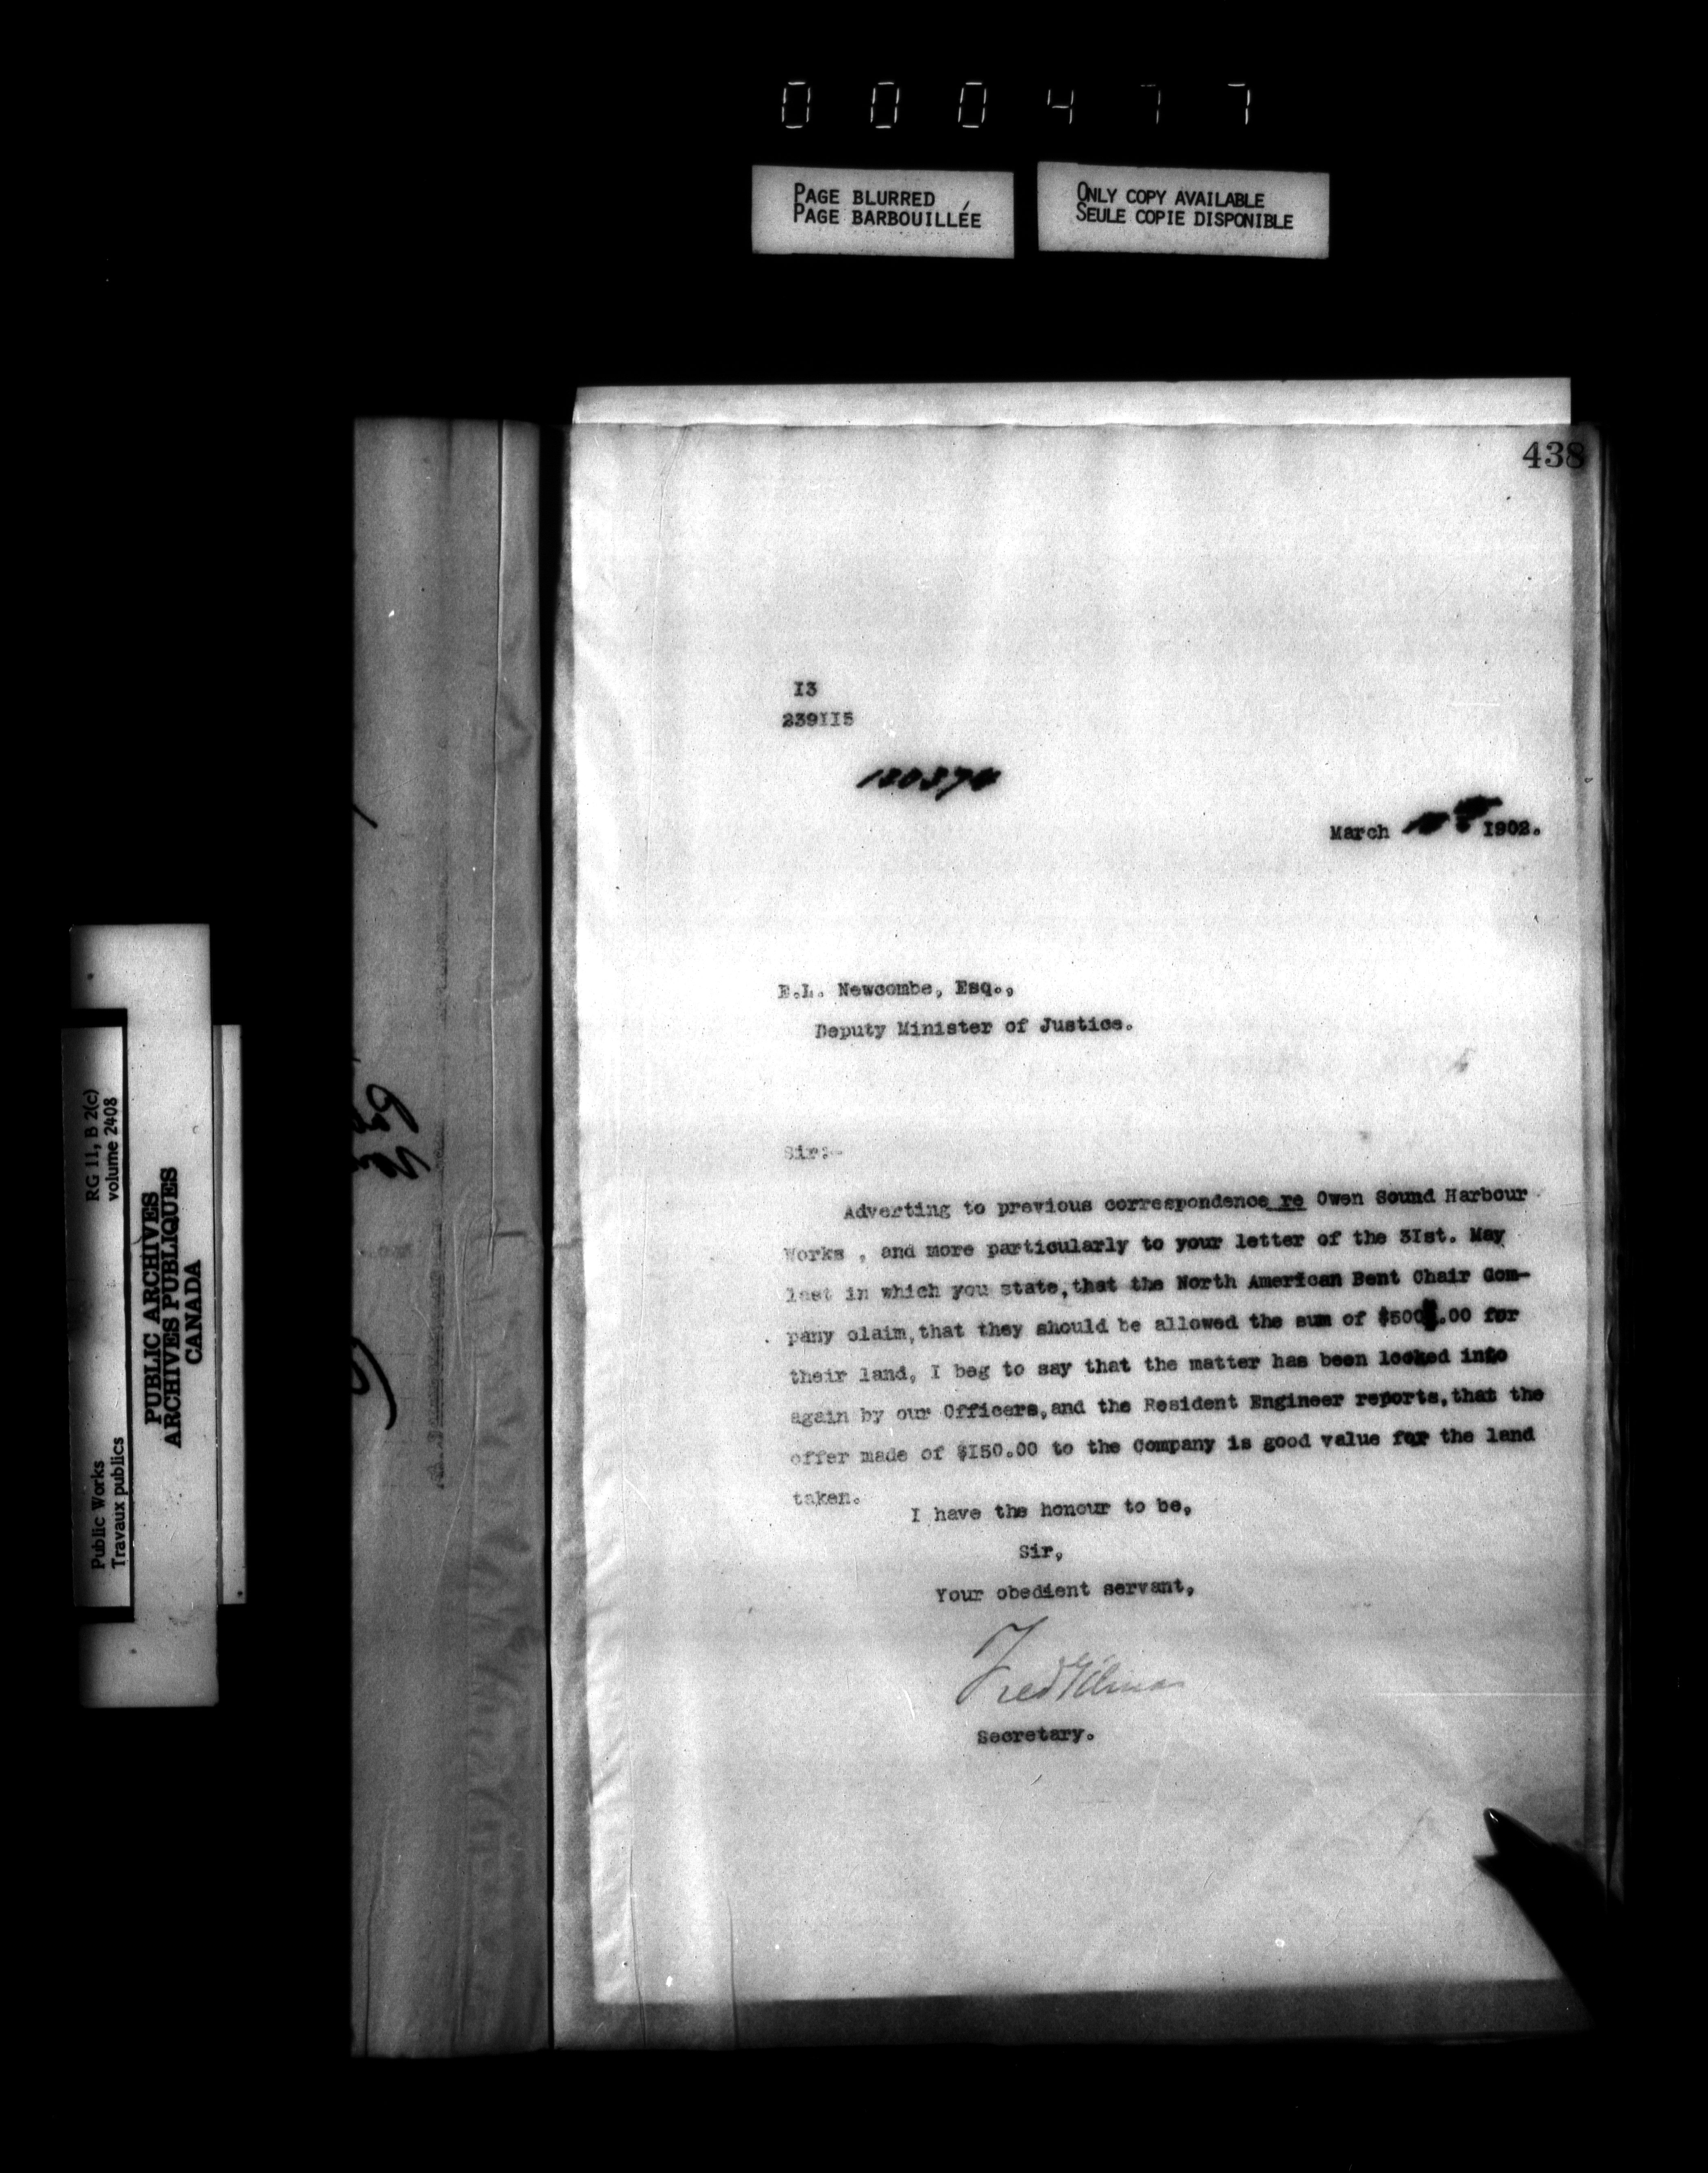 000477
PAGE BLURRED
PAGE BARBOUILLÉE
ONLY COPY AVAILABLE
SEULE COPIE DISPONIBLE
438
I3
239II5
120370
March 1902.
E.L. Newcombe, Esq.,
Deputy Minister of Justice.
Sir:-
Adverting to previous correspondence re Owen Sound Harbour
Works , and more particularly to your letter of the 3Ist. May
last in which you state, that the North American Bent Chair Com-
pany claim, that they should be allowed the sum of $500.00 for
their land, I beg to say that the matter has been looked into
again by our Officers, and the Resident Engineer reports, that the
offer made of $I50.00 to the Company is good value for the land
taken.
I have the honour to be,
Sir,
Your obedient servant,
Fred Gélinas
Secretary.
RG 11, B 2(c)
volume 2408
PUBLIC ARCHIVES
ARCHIVES PUBLIQUES
CANADA
Public Works
Travaux publics